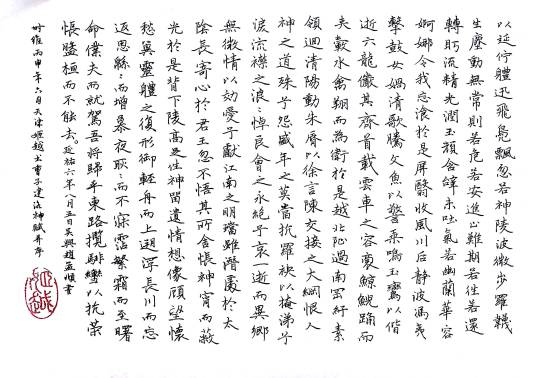 以延佇體迅飛鳧飄忽若神陵波微步羅韈
生塵動無常則若危若安進止難期若往若還
轉眄流精光潤玉顏含辭未吐氣若幽蘭華容
婀娜令我忘湌於是屏翳收風川后靜波馮夷
擊鼓女媧清歌騰文魚以警乘鳴玉鸞以偕
逝六龍儼其齊首載雲車之容裔鯨鯢踊而
夾轂水禽翔而為衛於是越北沚過南岡紆素
領迴清陽動朱脣以徐言陳交接之大綱恨人
神之道殊兮怨盛年之莫當抗羅袂以掩涕兮
淚流襟之浪〻悼良會之永絕兮哀一逝而異鄉
無微情以効愛兮獻江南之明璫雖潛處於太
陰長寄心於君王忽不悟其所舍悵神宵而蔽
光於是背下陵高足往神留遺情想像顧望懷
愁冀靈體之復形御輕舟而上遡浮長川而忘
返思緜〻而增慕夜耿〻而不寐霑繁霜而至曙
命僕夫而就駕吾將歸乎東路攬騑轡以抗策
悵盤桓而不能去。延祐六年八月五日吳興趙孟頫書
時維丙申年六月天津姬越書曹子建洛神賦并序
姬越